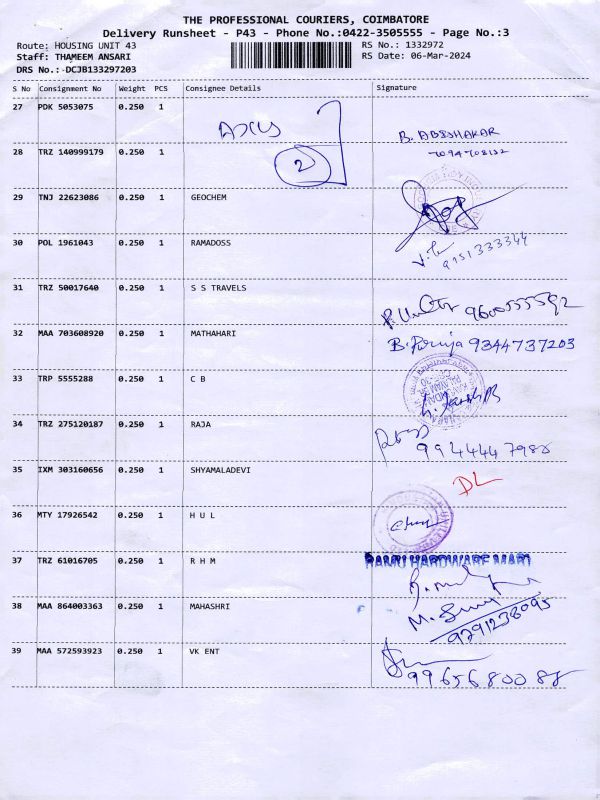 THE PROFESSIONAL COURIERS, COIMBATORE
Delivery Runsheet - P43 - Phone No.:0422-3505555 - Page No.:3
Route: HOUSING UNIT 43 RS No.: 1332972
Staff: THAMEEM ANSARI RS Date: 06-Mar-2024
DRS No.: -DCJB133297203
S No Consignment No Weight PCS Consignee Details Signature
27 PDK 5053075 0.250 1
B. ABISHAKAR
28 TRZ 140999179 0.250 1 2
29 TNJ 22623086 0.250 1 GEOCHEM
30 POL 1961043 0.250 1 RAMADOSS
9151333344
31 TRZ 50017640 0.250 1 S S TRAVELS
9600555592
32 MAA 703608920 0.250 1 MATHAHARI
9344737203
33 TRP 5555288 0.250 1 C B
34 TRZ 275120187 0.250 1 RAJA
35 IXM 303160656 0.250 1 SHYAMALADEVI
DL
36 MTY 17926542 0.250 1 H U L
37 TRZ 61016705 0.250 1 R H M
HARDWARE MART
38 MAA 864003363 0.250 1 MAHASHRI
9791238095
39 MAA 572593923 0.250 1 VK ENT
9965680088